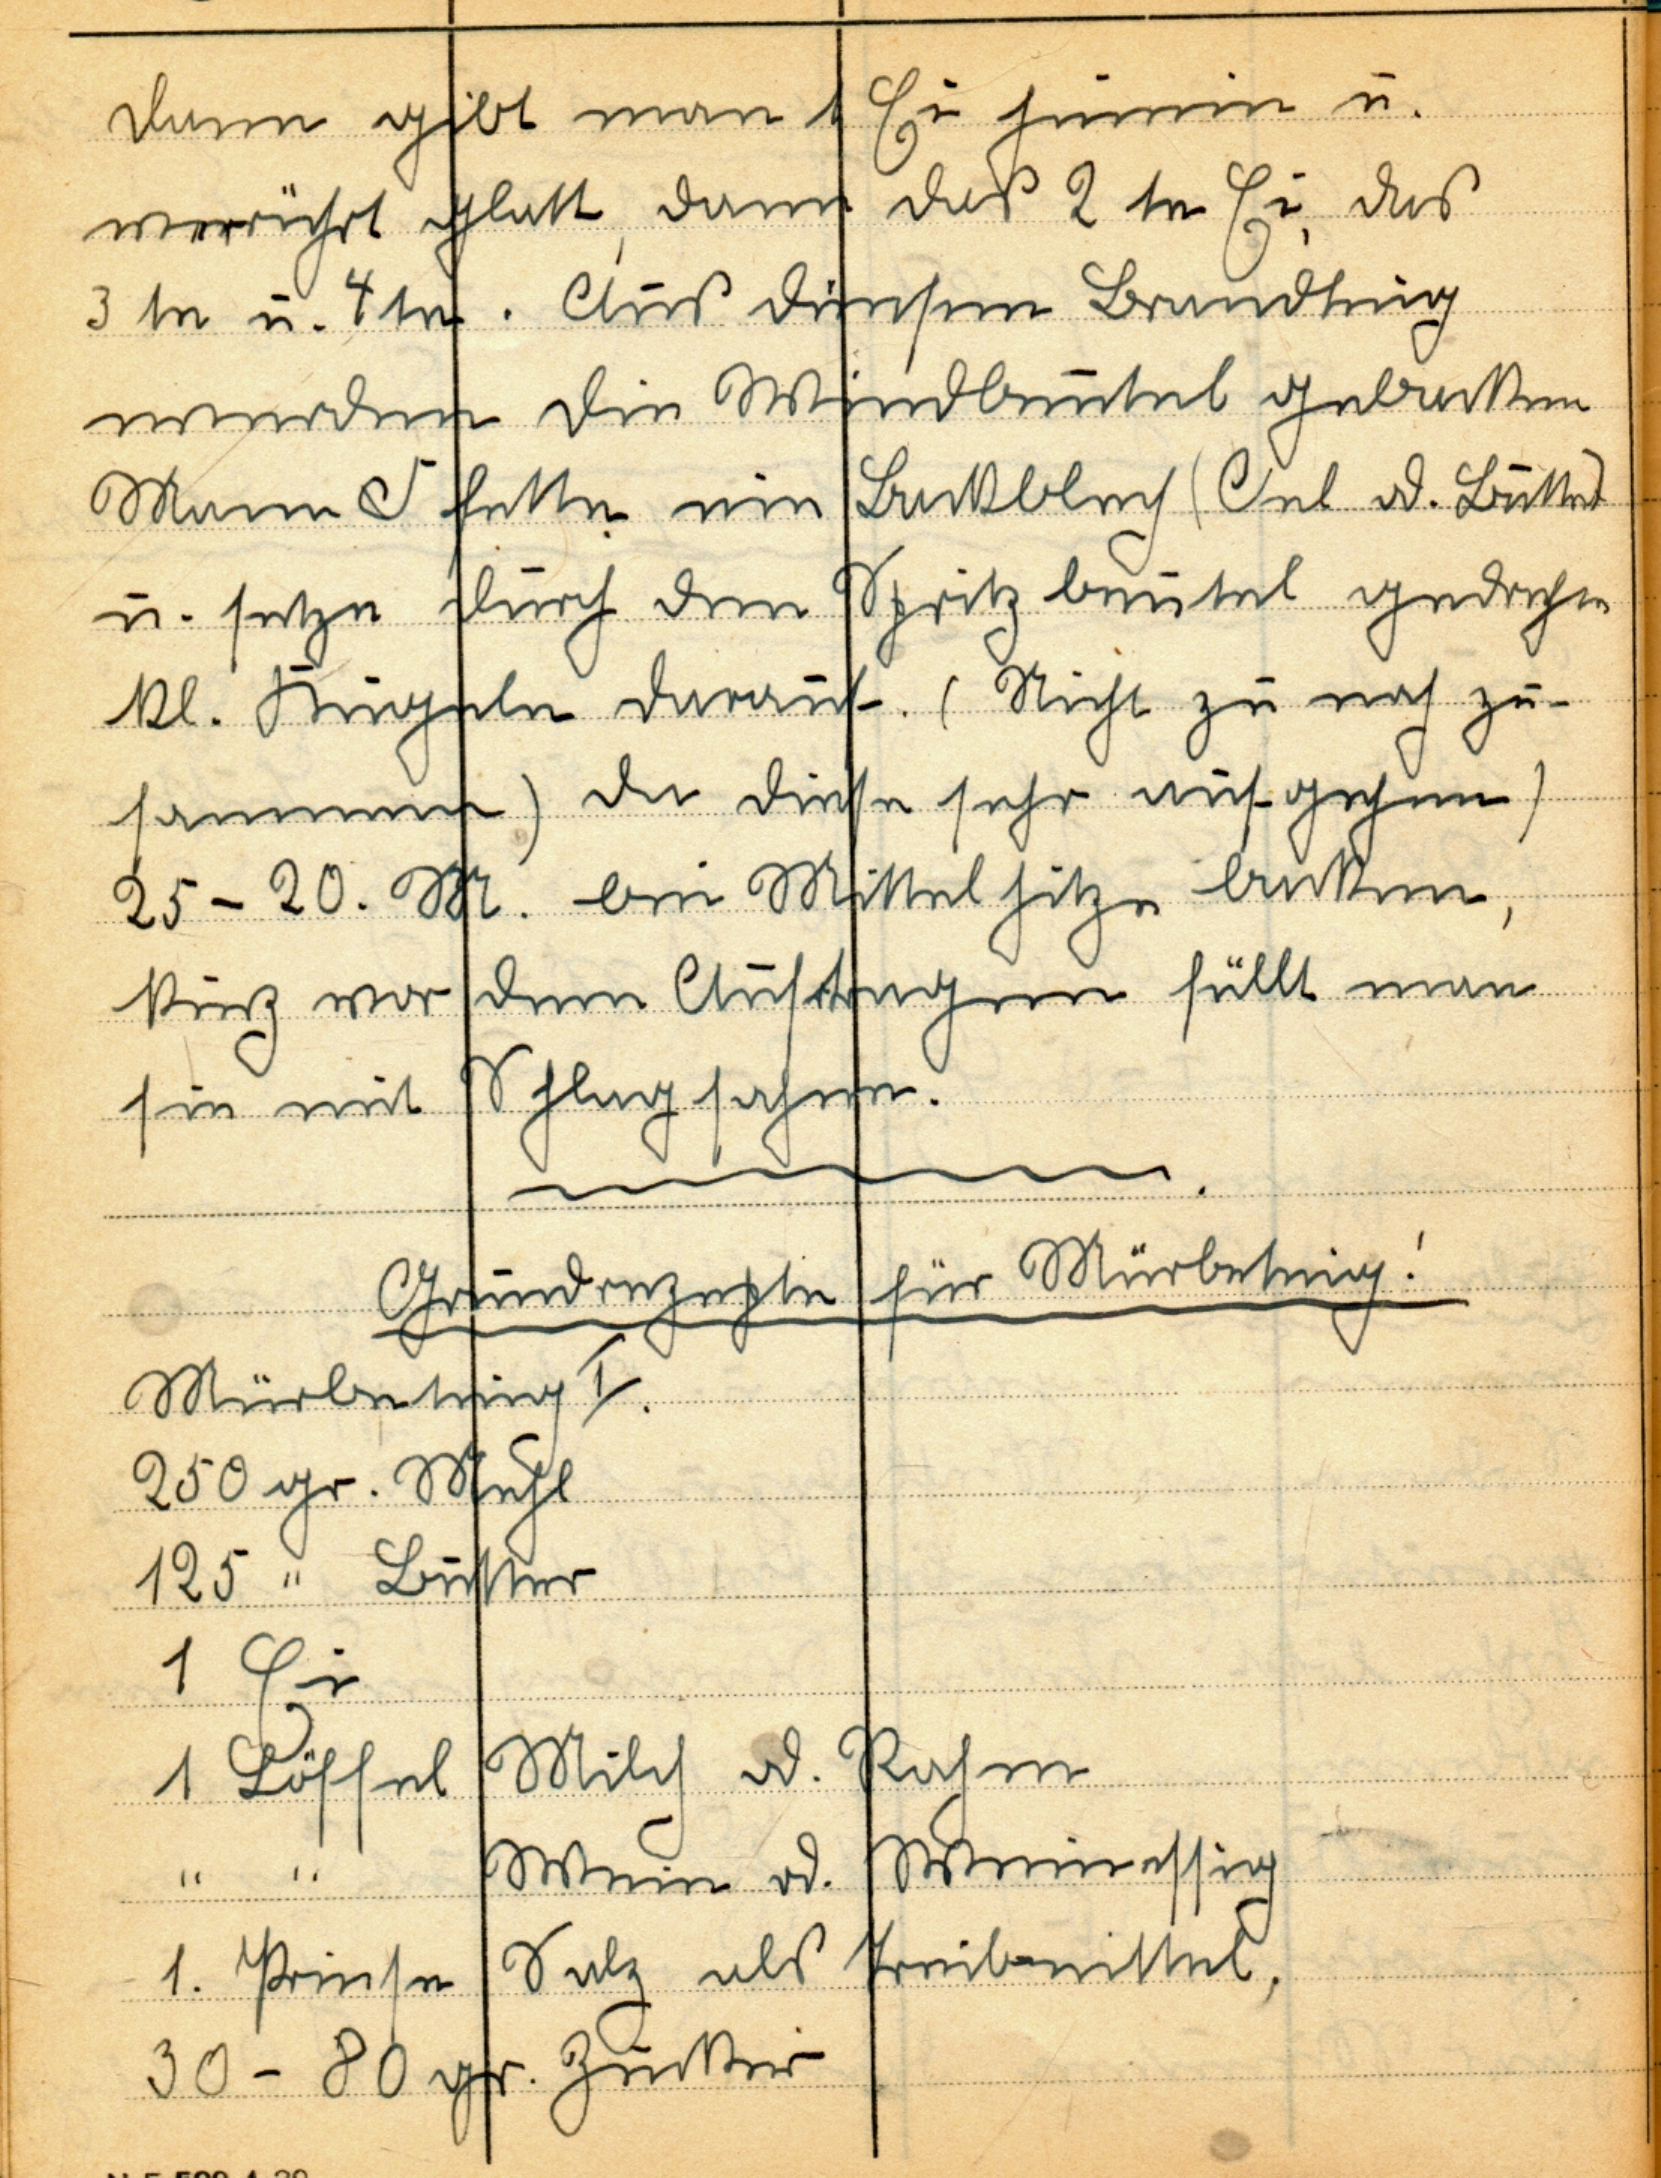 dann gibt man 1 Ei hinein u.
verrührt glatt, dann das 2 te Ei, das
3 te u. 4 te. Aus diesem Brandteig
werden die Windbeutel gebacken
Mann fette ein Backblech (Oel od. Butter)
u. setze durch den Spritzbeutel gedrehte
kl. Kugeln darauf. (Nicht zu nah zu-
sammen) da diese sehr aufgehen)
25 - 20. M. bei Mittelhitze backen,
kurz vor dem Auftragen füllt man
sie mit Schlagsahne.
Grundrezepte für Mürbeteig!
Mürbeteig I.
250 gr. Mehl
125 " Butter
1 Ei
1 Löffel Milch od. Rahm
" " Wein od. Weinessig
1. Priese Salz als Treibmittel,
30 - 80 gr. Zucker